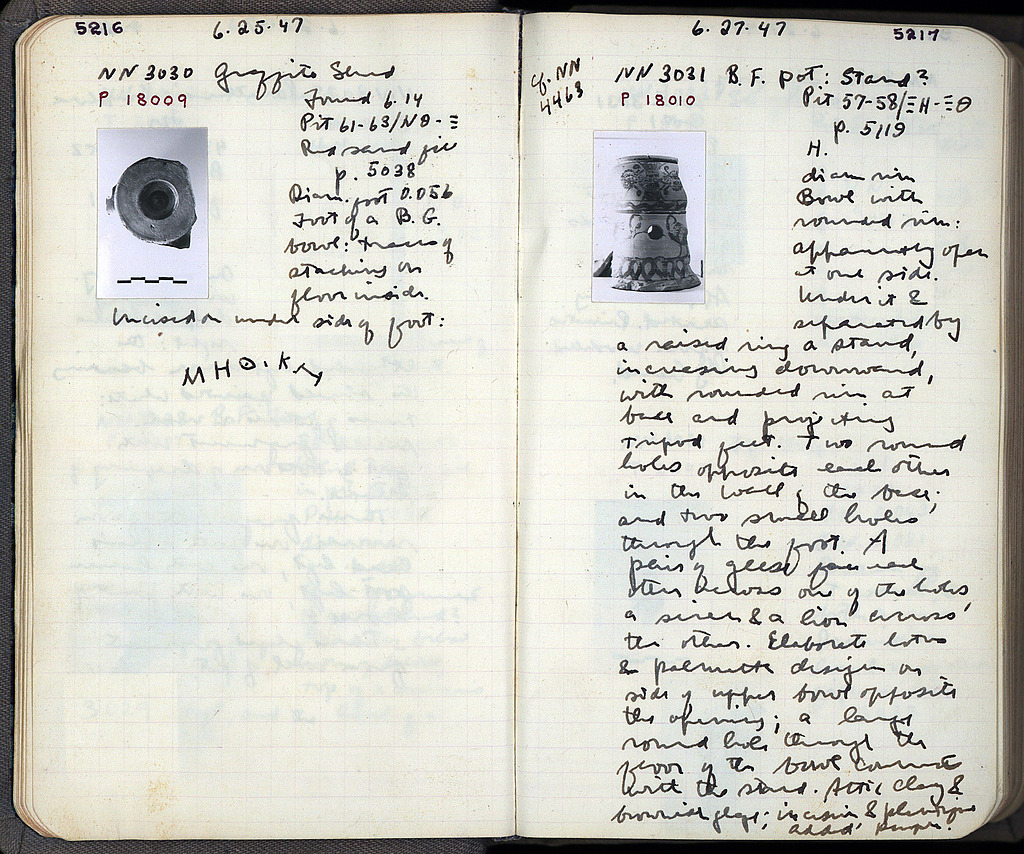 5216
6.25.47
NN 3030 Graffito Sherd
P 18009
Found 6.14
Pit 61-63/ΝΘ-Ξ
Red sand fill
p. 5038
Diam. foot 0.056
Foot of a B.G.
bowl: traces of
stacking on
floor inside.
Incised on under side of foot:
ΜΗΘ.Κ
6.27.47
5217
cf. NN
4463
NN 3031 B.F. pot: Stand?
P 18010
Pit 57-58/ΞΗ-ΞΘ
p. 5119
H.
diam rim
Bowl with
rounded rim:
apparently open
at one side.
Under it &
separated by
a raised ring a stand,
increasing downward,
with rounded rim at
base and projecting
tripod feet. Two round
holes opposite each other
in the wall of the base;
and two small holes
through the foot. A
pair of geese face each
other across one of the holes,
a siren & a lion across
the other. Elaborate lotus
& palmette design on
side of upper bowl opposite
the opening; a large
round hole through the
floor of the bowl connects
with the stand. Attic clay &
brownish glaze; incision &
added purple.